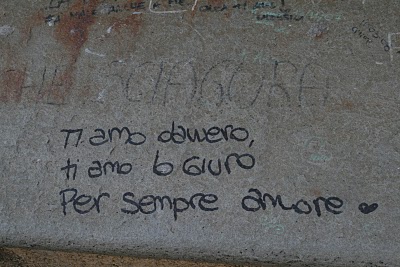 SCIAGURA
Ti amo davvero,
ti amo lo Giuro
Per sempre amore